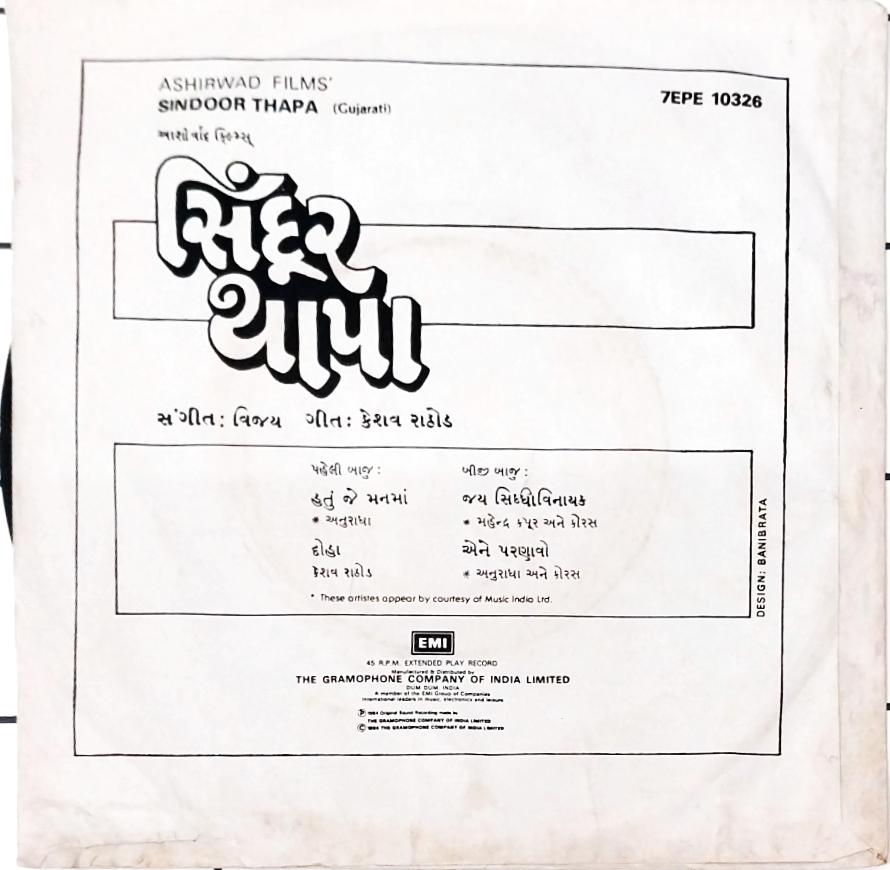 ASHIRWAD FILMS'
SINDOOR THAPA (Gujarati)
7EPE 10326
આશીર્વાદ ફિલ્મ્સ્
સિંદૂર
થાપા
સંગીત: વિજય ગીત: કેશવ રાઠોડ
પહેલી બાજુ: બીજી બાજુ:
હતું જે મનમાં જય સિધ્ધીવિનાયક
* અનુરાધા * મહેન્દ્ર કપૂર અને કોરસ
દોહા એને પરણાવો
કેશવ રાઠોડ * અનુરાધા અને કોરસ
* These artistes appear by courtesy of Music India Ltd.
DESIGN: BANIBRATA
EMI
45 R.P.M. EXTENDED PLAY RECORD
Manufactured & Distributed by
THE GRAMOPHONE COMPANY OF INDIA LIMITED
DUM DUM, INDIA
A member of the EMI Group of Companies
International leaders in music, electronics and leisure
℗ 1984 Original Sound Recording made by
THE GRAMOPHONE COMPANY OF INDIA LIMITED
© 1984 THE GRAMOPHONE COMPANY OF INDIA LIMITED